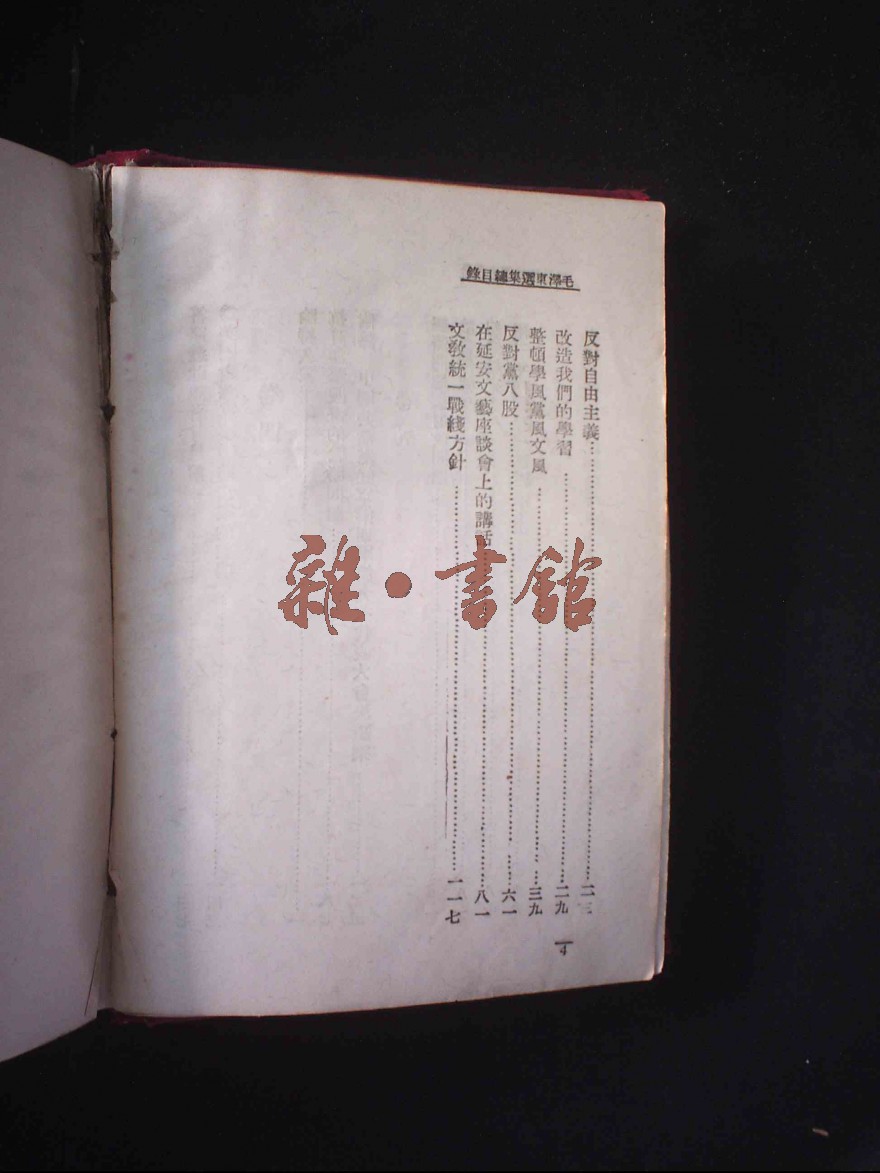 毛澤東選集總目錄
反對自由主義……二三
改造我們的學習……二九
整頓學風黨風文風……三九
反對黨八股……六一
在延安文藝座談會上的講話……八一
文敎統一戰綫方針……一一七
4
雜·書館